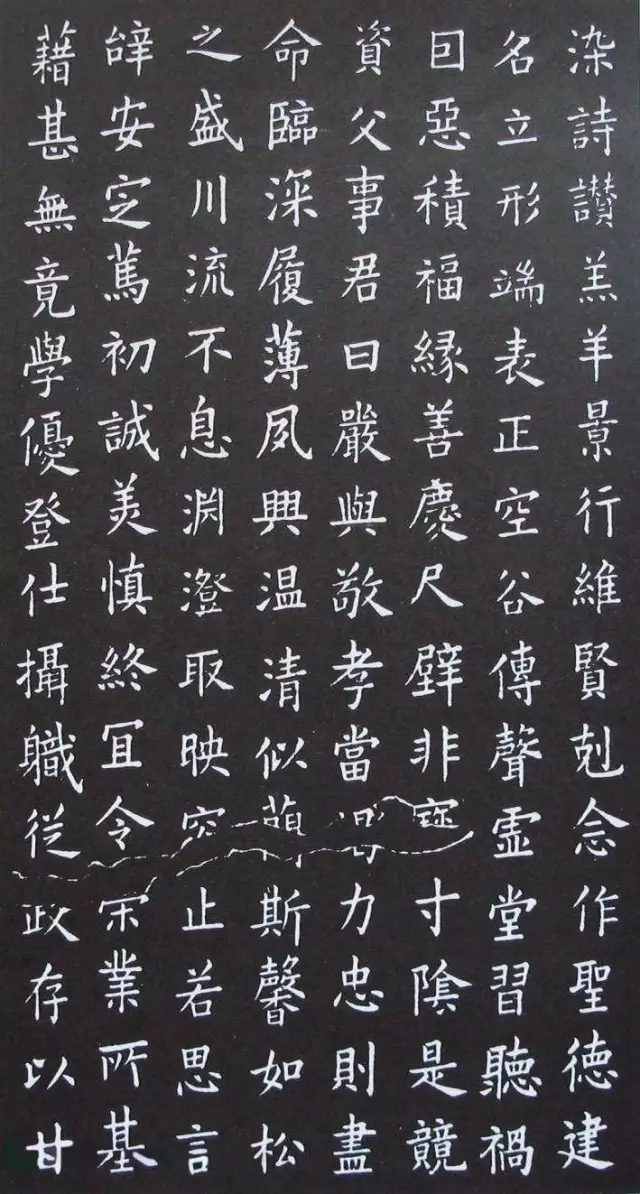 染詩讚羔羊景行維賢剋念作聖德建
名立形端表正空谷傳聲虛堂習聽禍
因惡積福緣善慶尺璧非寶寸陰是競
資父事君曰嚴與敬孝當力忠則盡
命臨深履薄夙興温清似蘭斯馨如松
之盛川流不息淵澄取映容止若思言
辭安定篤初誠美慎終宜令榮業所基
藉甚無竟學優登仕攝職從政存以甘